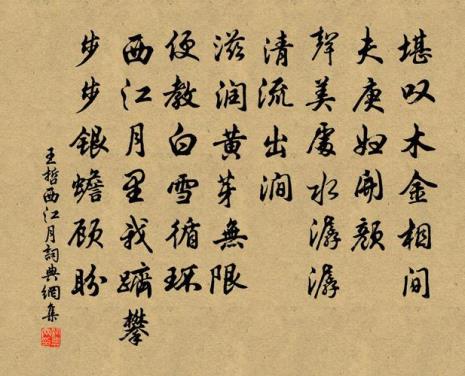 堪叹木金相间
夫庚妇開颜
聲美處水潺潺
清流出涧
滋润黄芽無限
便教白雪循环
西江月里我躋攀
步步银蟾顾盼
王哲西江月詞典網集